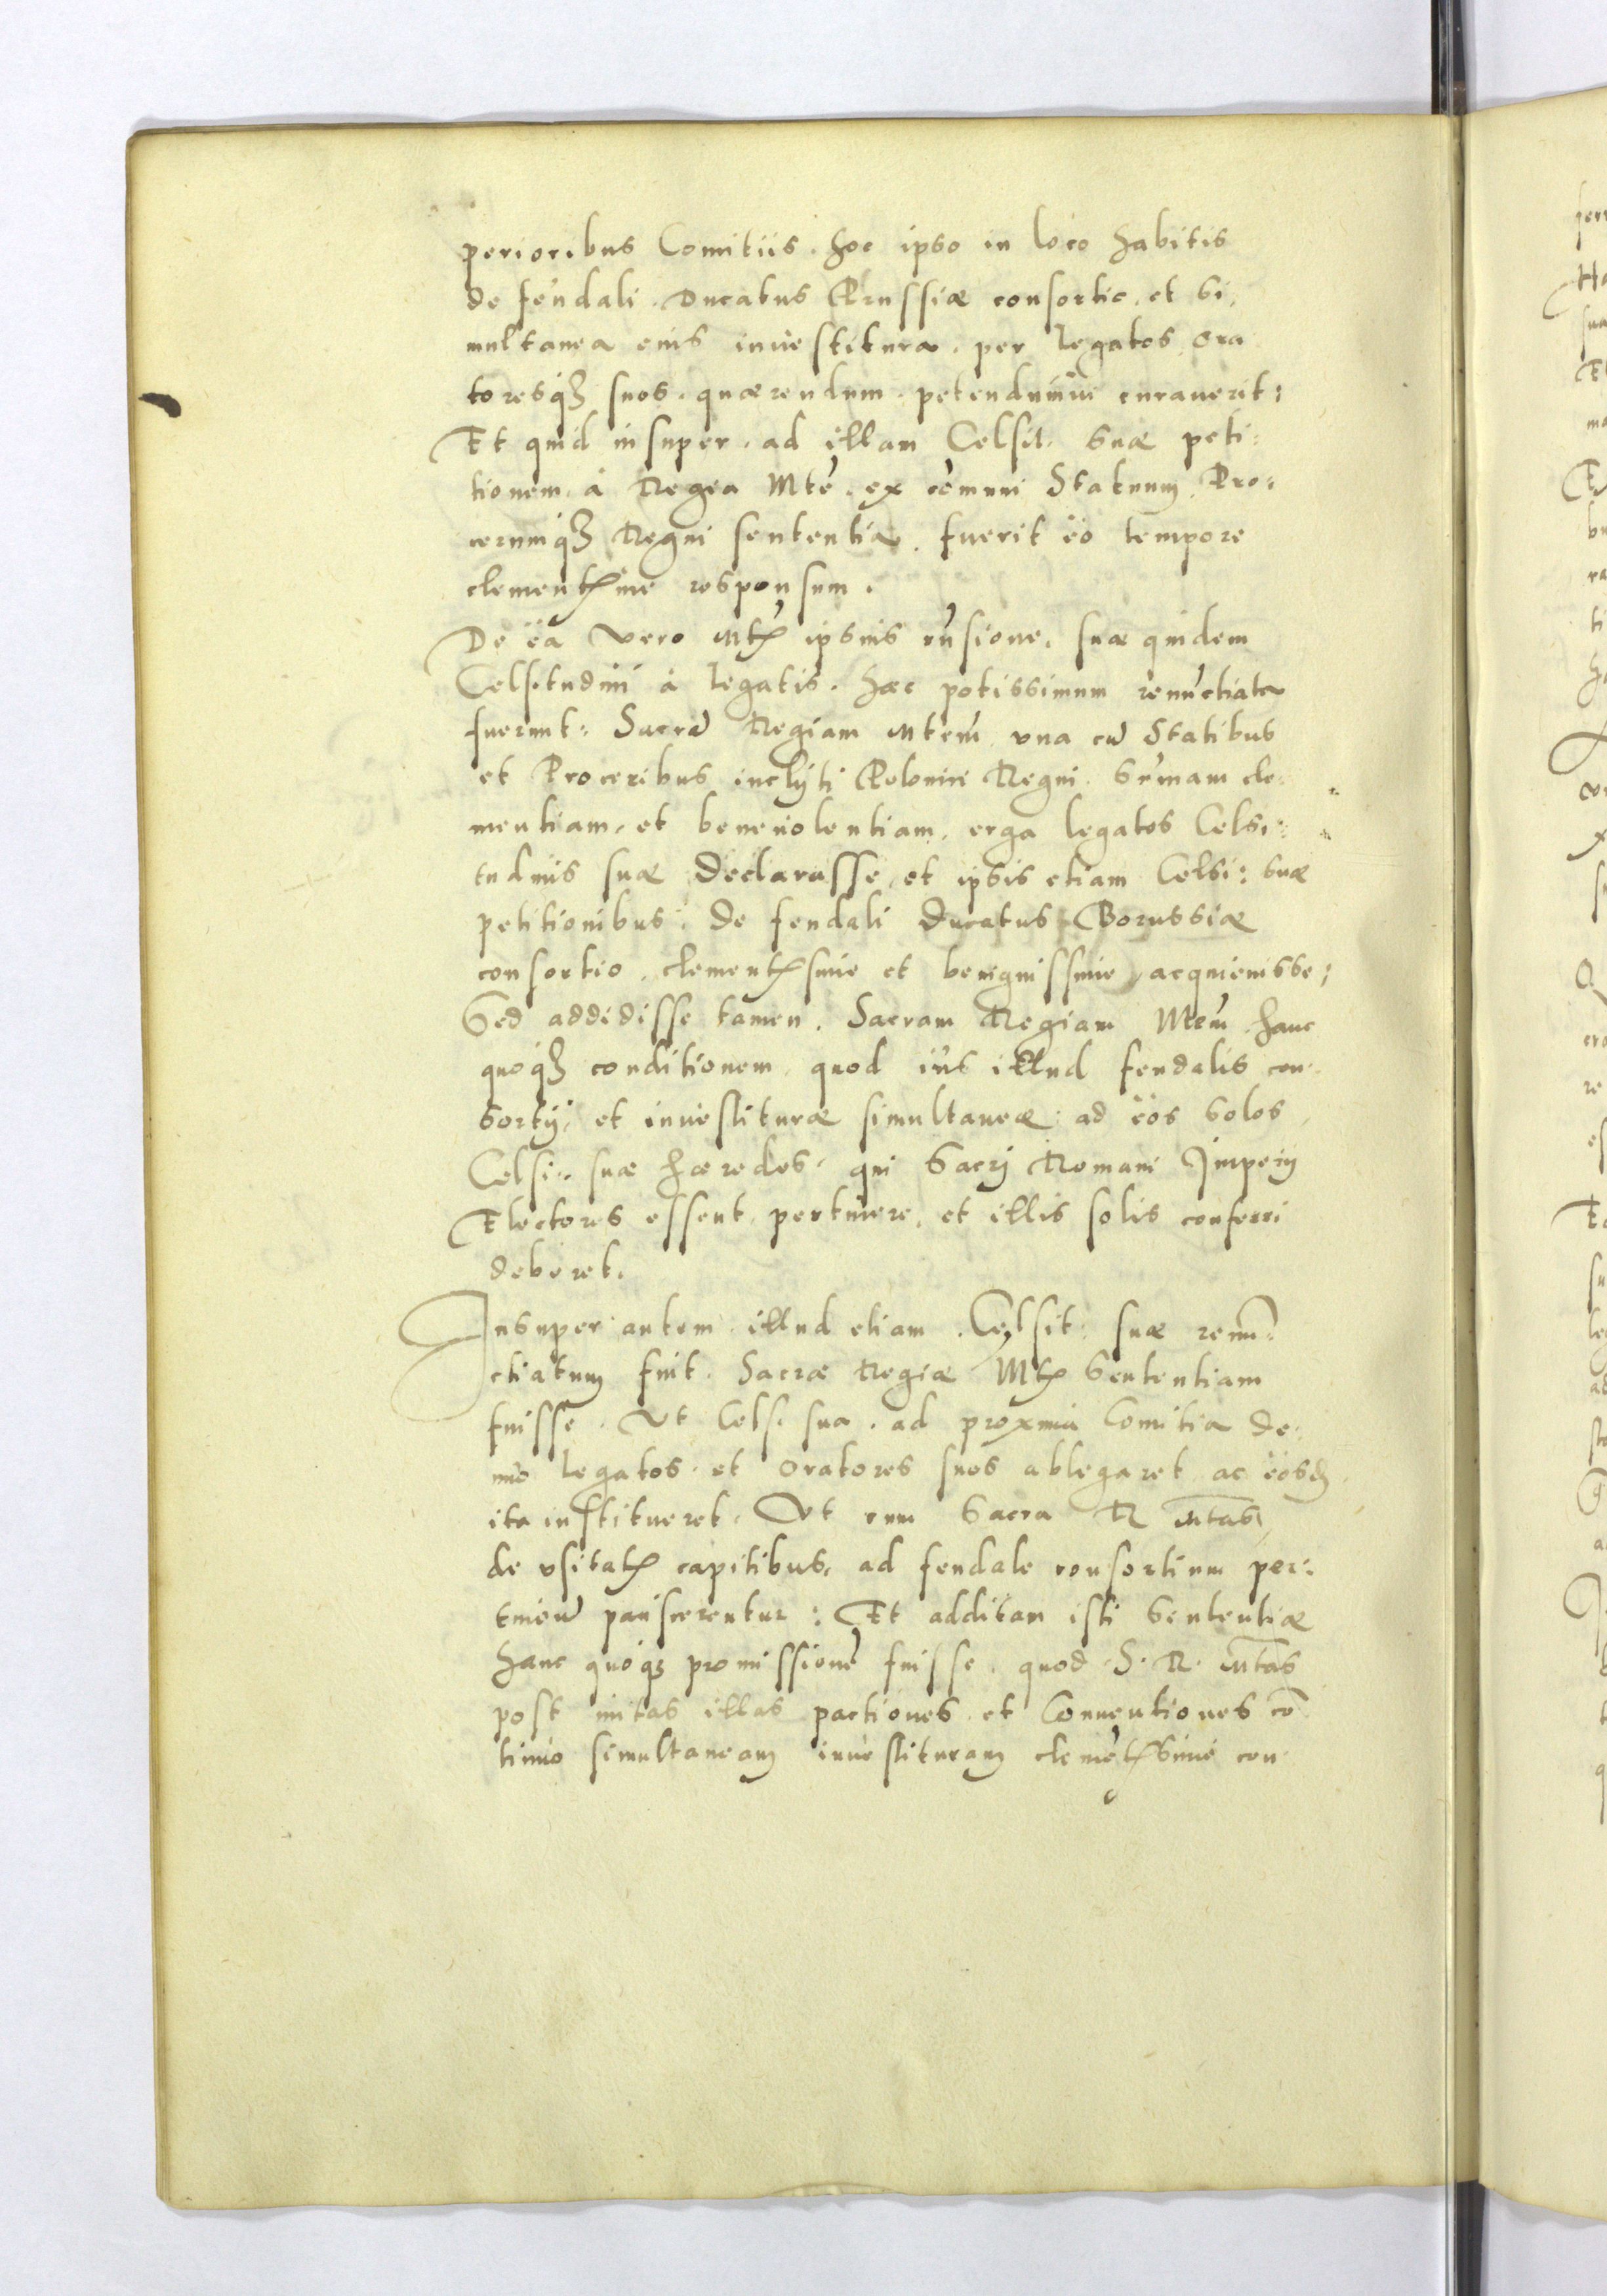 perioribus Comitiis hoc ipso in loco habitis
de feudali Ducatus Prussiæ consortio, et si-
multanea eius inuestitura, per legatos, ora
toresq; suos, quærendum petendumue curauerit:
Et quid insuper, ad illam Celsit. suæ peti:
tionem, à Regia Mte, ex cōmuni Statuum, Pro:
cerumq; Regni sententia, fuerit eo tempore
clementissime responsum.
De ea vero Mtis ipsius rn̄sione, suæ quidem
Celsitudini à legatis, hæc potissimum renūctiata
fuerunt: Sacrā Regiam Mtem vna cū Statibus
et Proceribus inclyti Polonici Regni, sum̄am cle-
mentiam, et beneuolentiam, erga legatos Celsi:
tudinis suæ declarasse, et ipsis etiam Celsi: suæ
petitionibus, de feudali Ducatus Borussiæ
consortio, clementissime et benignissime acquieuisse:
Sed addidisse tamen, Sacram Regiam Mtem hanc
quoq; conditionem, quod ius illud feudalis con-
sortij, et inuestituræ simultaneæ, ad eos solos
Celsi: suæ hæredes, qui Sacrj Romani Imperij
Electores essent, pertinere, et illis solis conferri
deberet.
Insuper autem illud etiam Celsit: suæ renun:
ctiatum fuit, Sacræ Regiæ Mtis Sententiam
fuisse, Vt Cels. sua, ad proxima Comitia de-
nuo legatos et Oratores suos ablegaret ac eosd
ita institueret, Vt cum Sacra R Mtas
de vsitatis capitibus, ad feudale consortium per:
tinen paciscerentur: Et additam isti Sententiæ
hanc quoq; promissionē fuisse, quod S. R. Mtas
post initas illas pactiones et Conuentiones cō
tinuo simultaneam inuestituram clemētissime con-